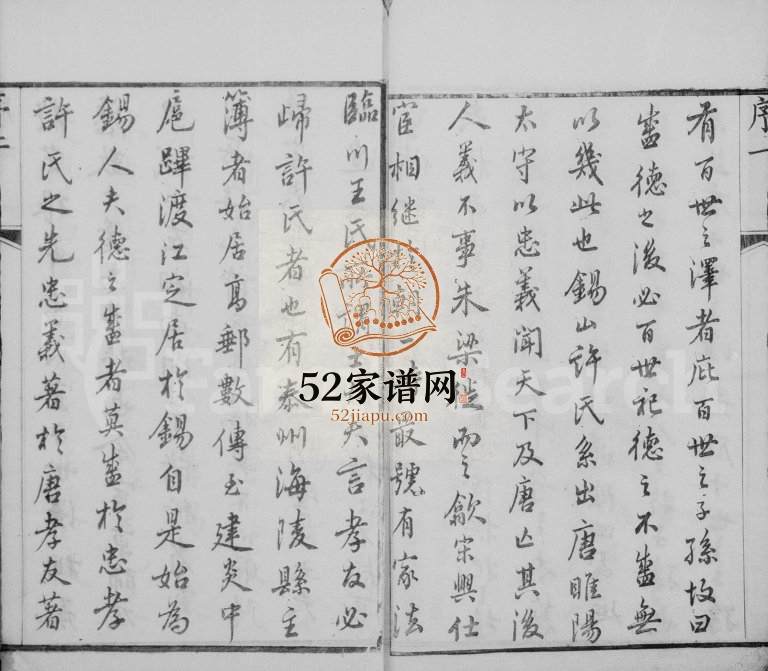 序一
有百世之澤者庇百世之子孫故曰
盛德之後必百世祀德之不盛無
以幾此也錫山許氏系出唐睢陽
太守以忠義聞天下及唐亡其後
人義不事朱梁徙而之歙宋興仕
宦相继 最號有家法
臨川王氏 言孝友必
歸許氏者也有泰州海陵縣主
簿者始居高郵數傳至建炎中
扈蹕渡江定居於錫自是始為
錫人夫德之盛者莫盛於忠孝
許氏之先忠義著於唐孝友著
52家谱网
52jiapu.com